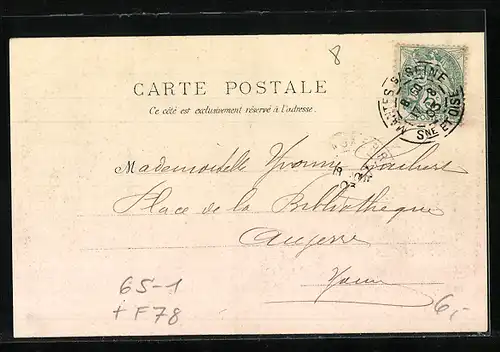 8
CARTE POSTALE
Ce côté est exclusivement réservé à l'adresse.
MANTES-S-SEINE
SNE ET OISE
Mademoiselle Yvonne
Place de la Bibliothèque
Auxerre
Yonne
65-1
+ F78
6,-